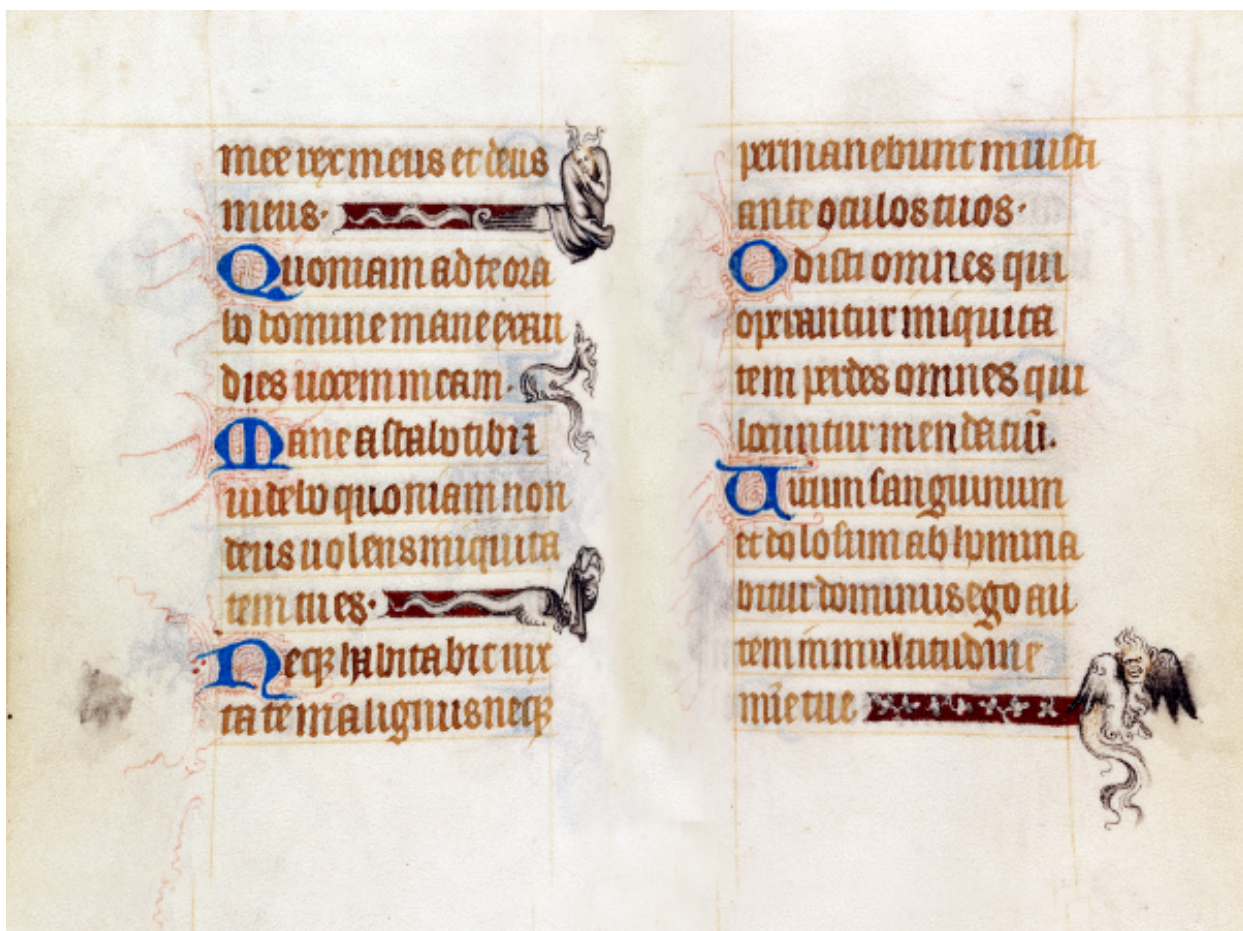 mee rex meus et deus
meus.
Quoniam ad te ora
bo domine mane exau
dies uocem meam.
Mane astabo tibi ⁊
uidebo quoniam non
deus uolens iniquita
tem tu es.
Neqꝫ habitabit iux
ta te malignus neqꝫ
permanebunt iniusti
ante oculos tuos.
Odisti omnes qui
operantur iniquita
tem perdes omnes qui
locuntur mendaciū.
Uirum sanguinum
et dolosum abhomina
bitur dominus ego au
tem in multitudine
mīe tue